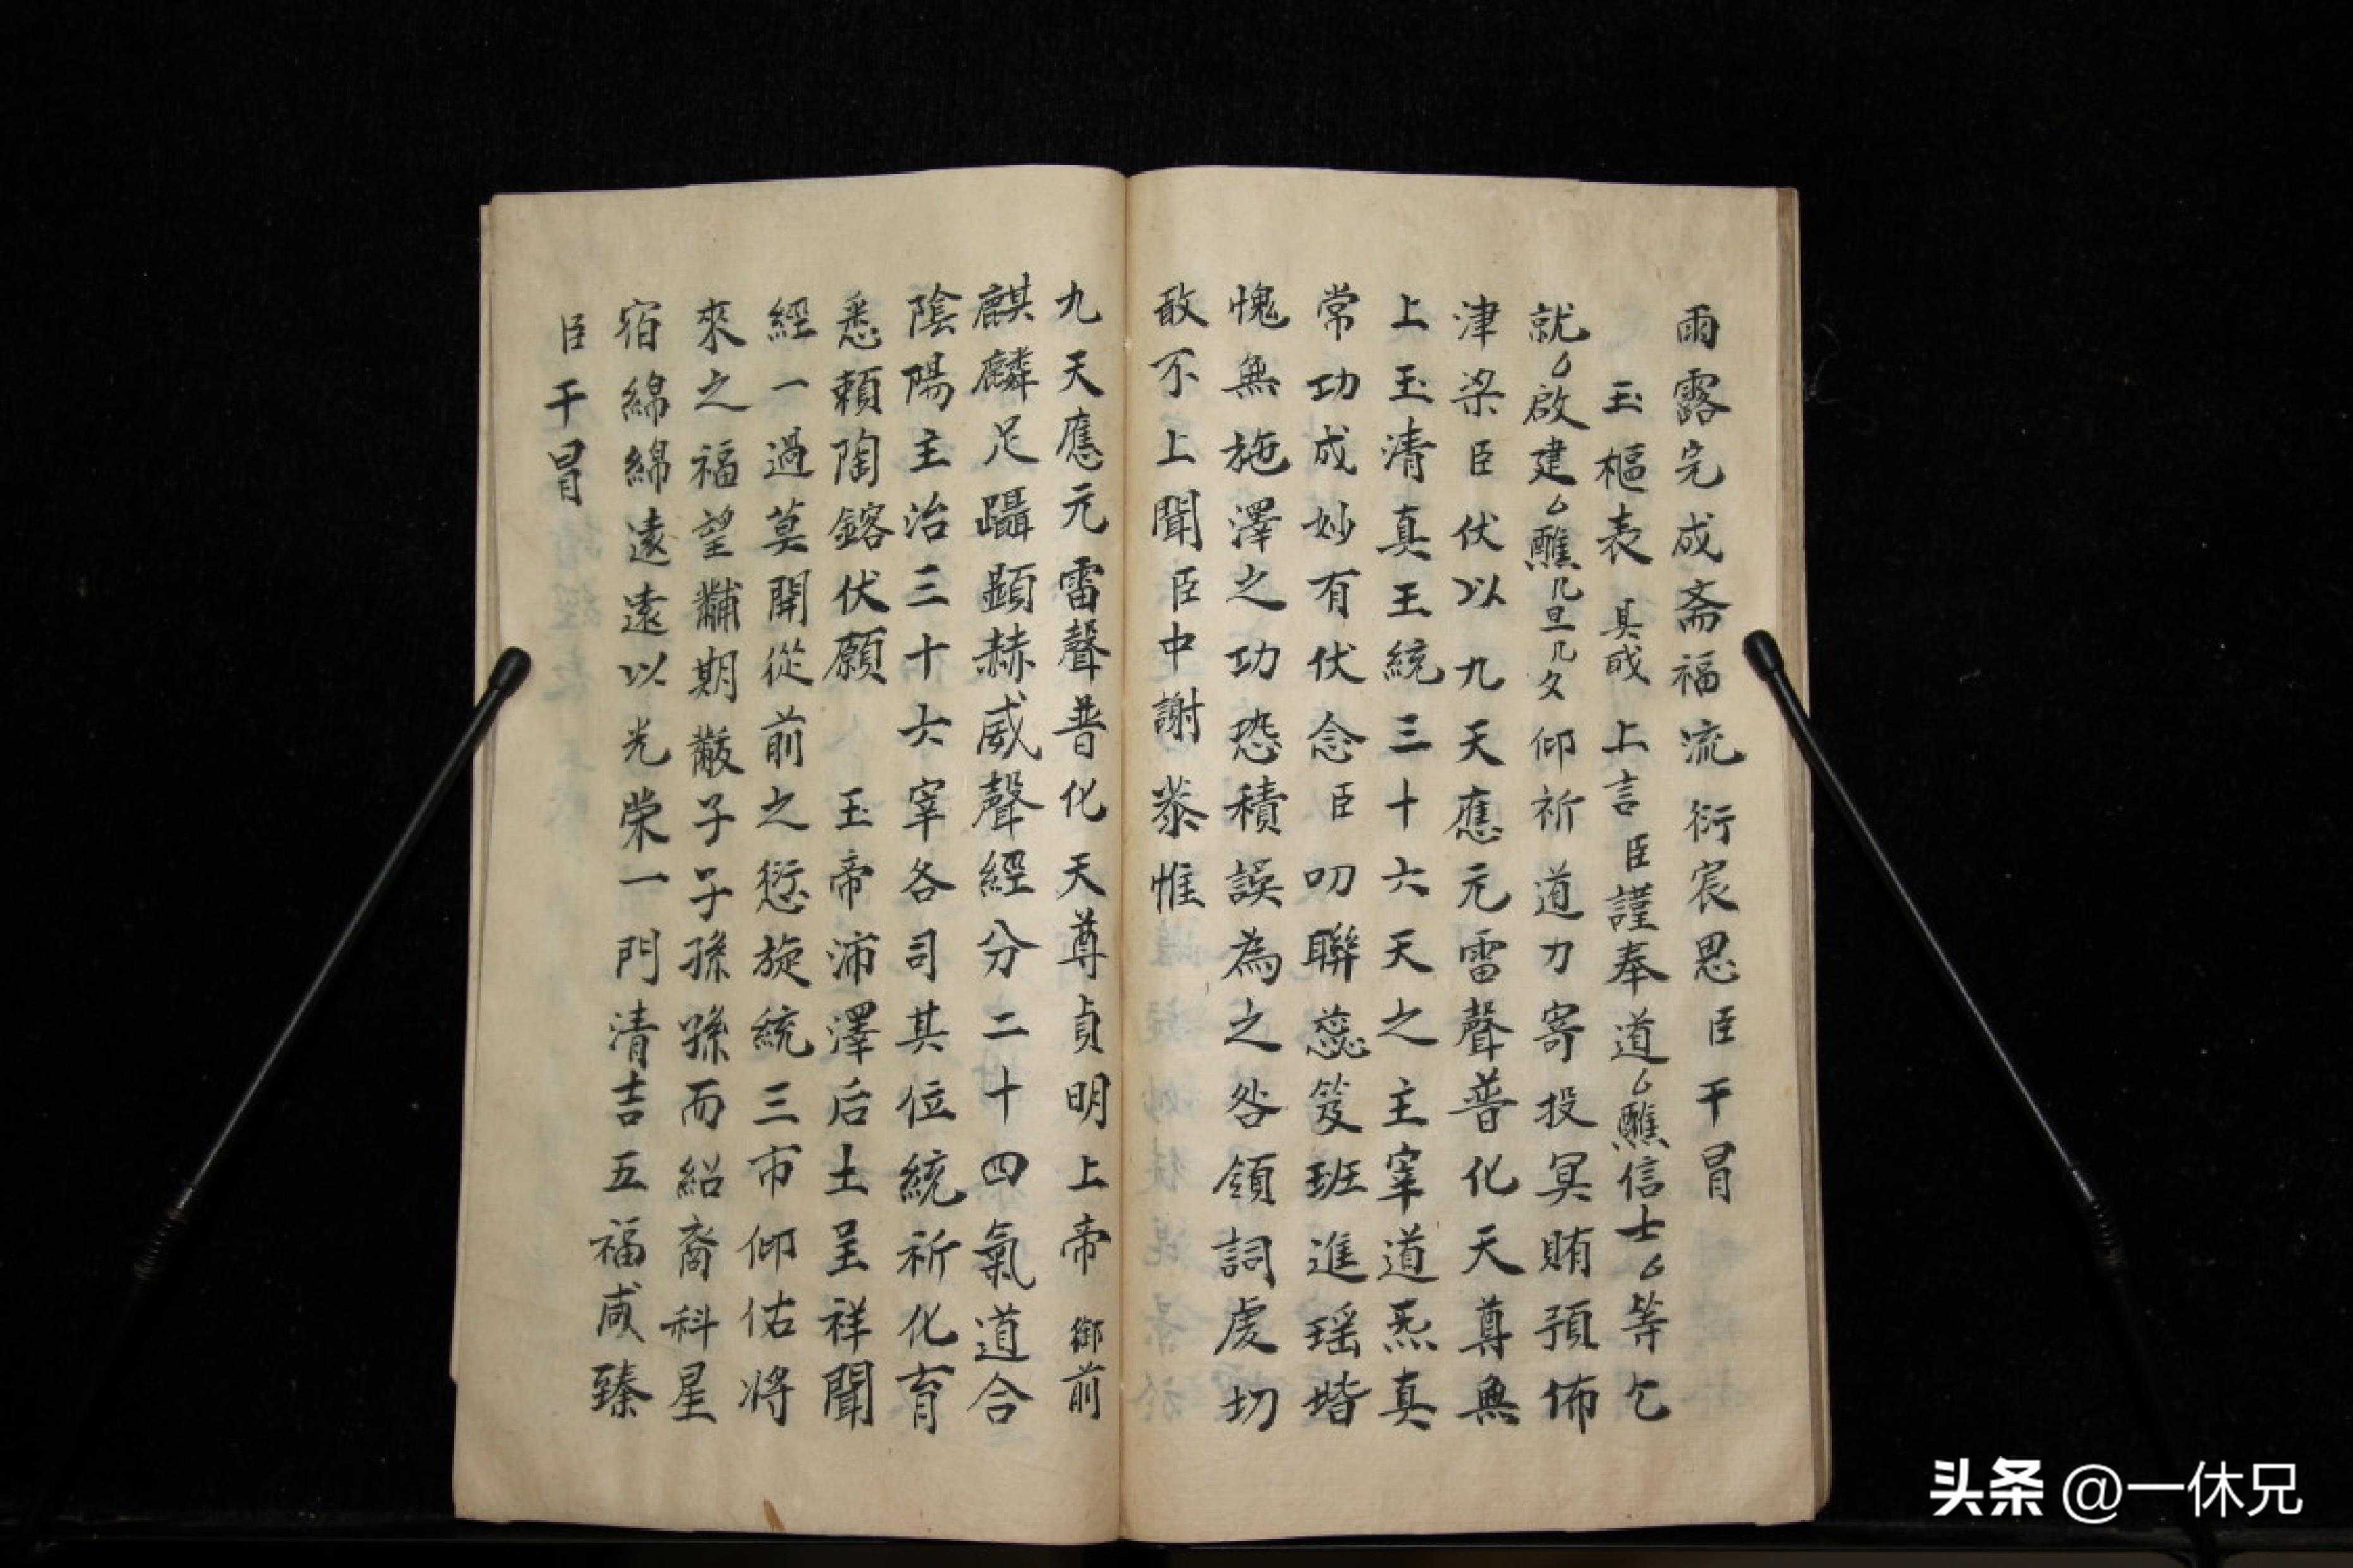 雨露完成斋福流衍宸恩臣干冒
玉樞表 具戝 上言臣謹奉道厶醮信士厶等乞
就厶啟建厶醮几旦几夕仰祈道力寄投冥賄預佈
津梁臣伏以九天應元雷聲普化天尊無
上玉清真王統三十六天之主宰道炁真
常功成妙有伏念臣叨聯蕊笈班進瑶堦
愧無施澤之功恐積誤為之咎領詞虔切
敢不上聞臣中謝 恭惟
九天應元雷聲普化天尊貞明上帝 御前
麒麟足躡顯赫威聲經分二十四氣道合
陰陽主治三十六宰各司其位統祈化育
悉賴陶鎔伏願 玉帝沛澤后土呈祥聞
經一過莫開從前之愆旋統三市仰估将
來之福望黼期黻子子孫孫而紹裔科星
宿綿綿遠遠以光荣一門清吉五福咸臻
臣干冒
头条 @一休兄